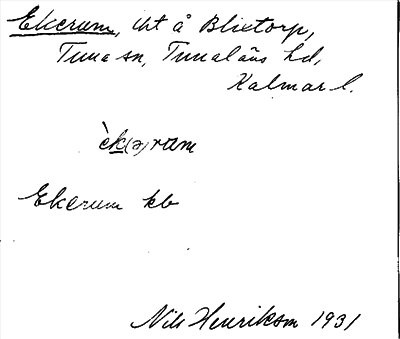 Ekerum, tht å Blixtorp,
Tuna sn, Tunaläns hd,
Kalmar l.
èk(ə)rum
Ekerum kb
Nils Henriksm 1931